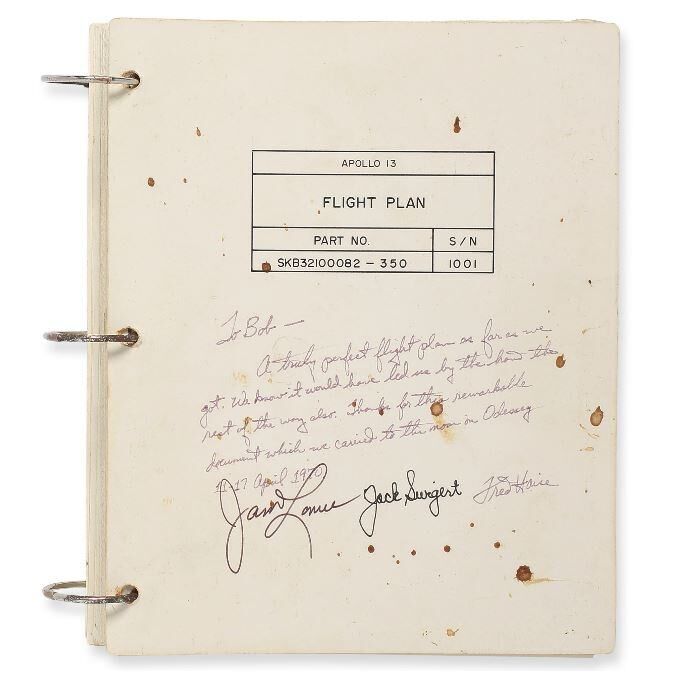 APOLLO 13
FLIGHT PLAN
PART NO. S/N
SKB32100082-350 1001
To Bob —
A truly perfect flight plan as far as we
got. We know it would have led us by the hand the
rest of the way also. Thanks for this remarkable
document which we carried to the moon in Odyssey
11-17 April 1970
James Lovell Jack Swigert Fred Haise